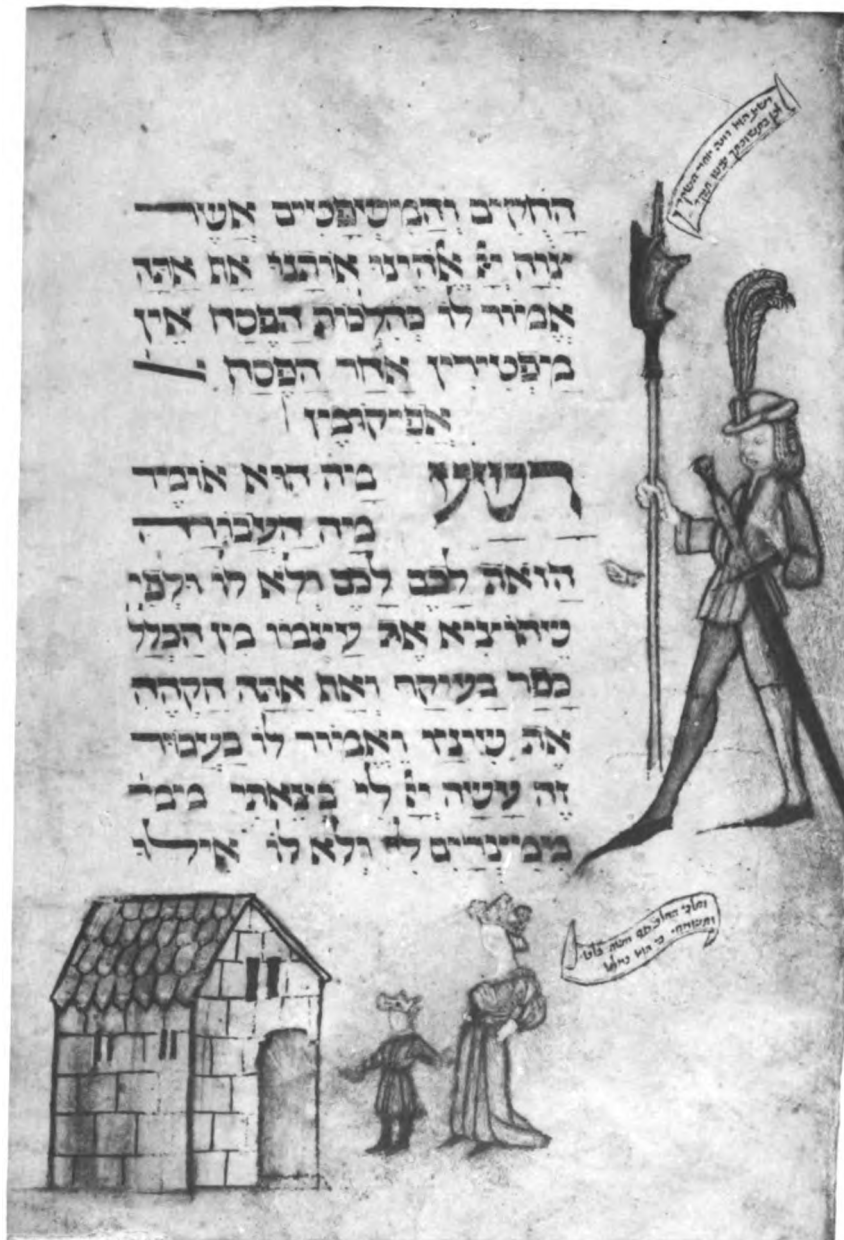 הַחֻקִים וְהַמִישְפָטִיים אֲשֶׁר
יְצַוֶה יְיָ אֱלֹהֵינוּ אוֹתָנוּ אַת אַתָּה
אֱמוֹר לוֹ כְּהִלְכוֹת הַפֶּסַח אֵין
מִיפְטִירִין אַחַר הַפֶּסַח
אפִיקוּמִין
רשע מַיה הוּא אוֹמֵר
מַיה הָעֲבוֹדָה
הַזֹאת לָכֶם לָכֶם וְלֹא לוֹ וּלְפִי
שֶיהוֹצִיא אֶת עַיצְמוֹ מִן הַכְּלָל
כָּפַר בְּעִיקָר וְאַת אַתָּה הַקְהֵה
אֶת שִינָיו וֶאֱמוֹר לוֹ בַּעֲבוּר
זֶה עָשָׂה יְיָ לִי בְּצֵאתִי מִימִצ
מִימִיצְרַיִם לִי וְלֹא לוֹ אִילוּ